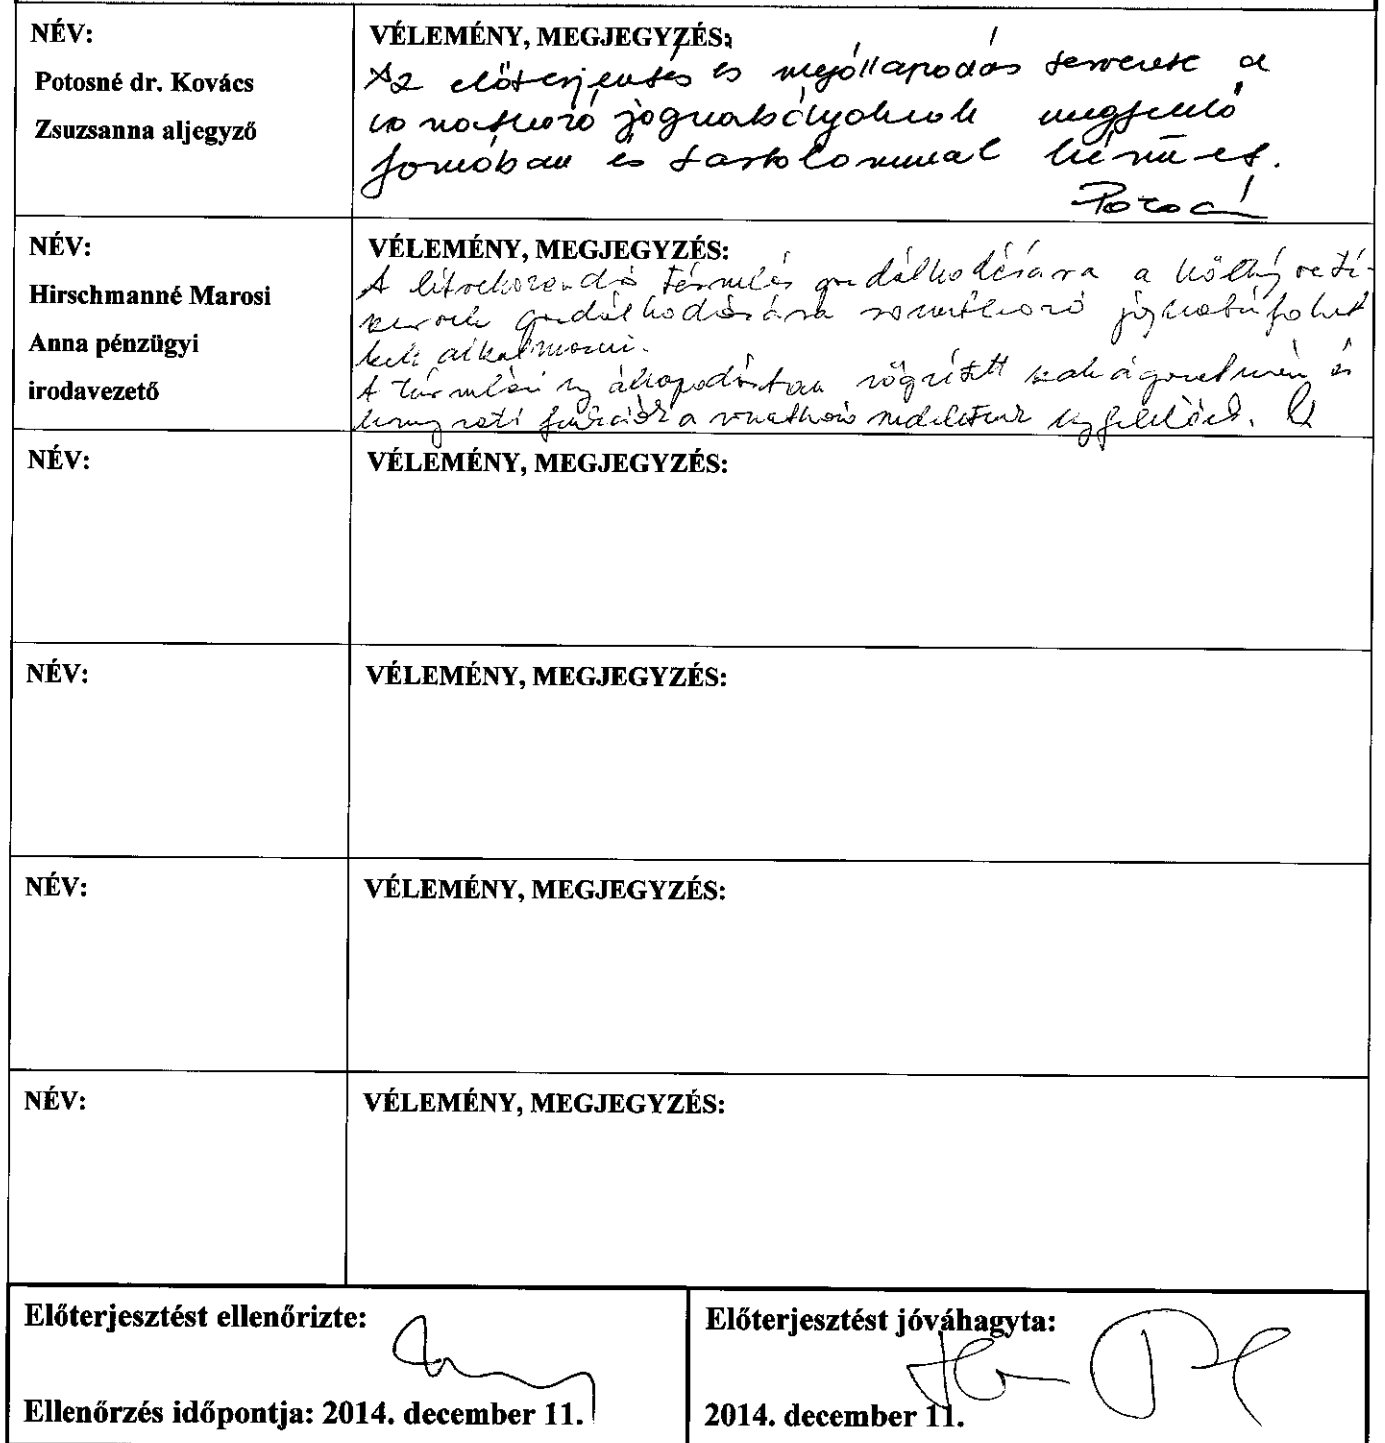 NÉV:
Potosné dr. Kovács
Zsuzsanna aljegyző
VÉLEMÉNY, MEGJEGYZÉS:
Az előterjesztés és megállapodás tervezete a
vonatkozó jogszabályoknak megfelelő
formában és tartalommal készült.
NÉV:
Hirschmanné Marosi
Anna pénzügyi
irodavezető
VÉLEMÉNY, MEGJEGYZÉS:
A létrehozandó társulás gazdálkodására a költségvetési
szervek gazdálkodására vonatkozó jogszabályokat
kell alkalmazni.
A társulási megállapodásban rögzített szakágazatok és
kormányzati funkciók a vonatkozó rendeletnek megfelelőek.
NÉV:
VÉLEMÉNY, MEGJEGYZÉS:
NÉV:
VÉLEMÉNY, MEGJEGYZÉS:
NÉV:
VÉLEMÉNY, MEGJEGYZÉS:
NÉV:
VÉLEMÉNY, MEGJEGYZÉS:
Előterjesztést ellenőrizte:
Ellenőrzés időpontja: 2014. december 11.
Előterjesztést jóváhagyta:
2014. december 11.